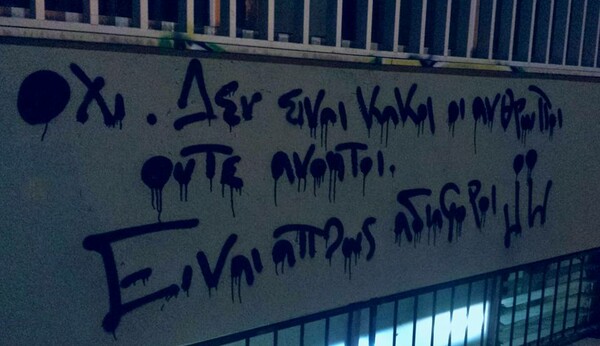 Οχι. Δεν ειναι κακοι οι ανθρωποι
ουτε ανοητοι.
Ειναι απλως αδιαφοροι